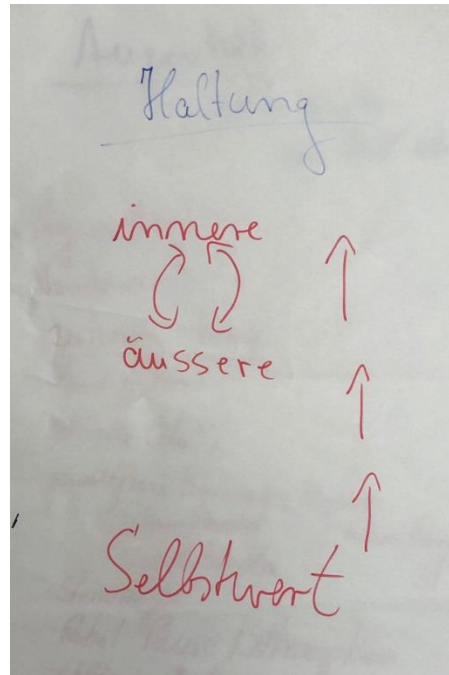 Haltung
innere
äussere
Selbstwert